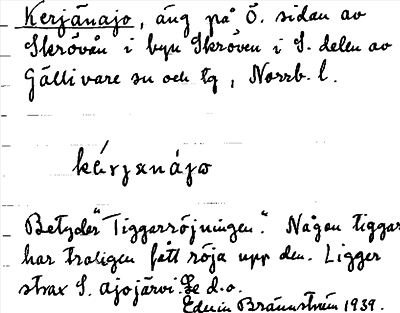 Kerjänajo, äng på Ö. sidan av
Skröven i byn Skröven i S. delen av
Gällivare sn och tg, Norrb. l.
kérjɛnájo
Betyder "Tiggarröjningen". Någon tiggar
har troligen fått röja upp den. Ligger
strax S. ajojärvi. Se d.o.
Edvin Brännström 1939.